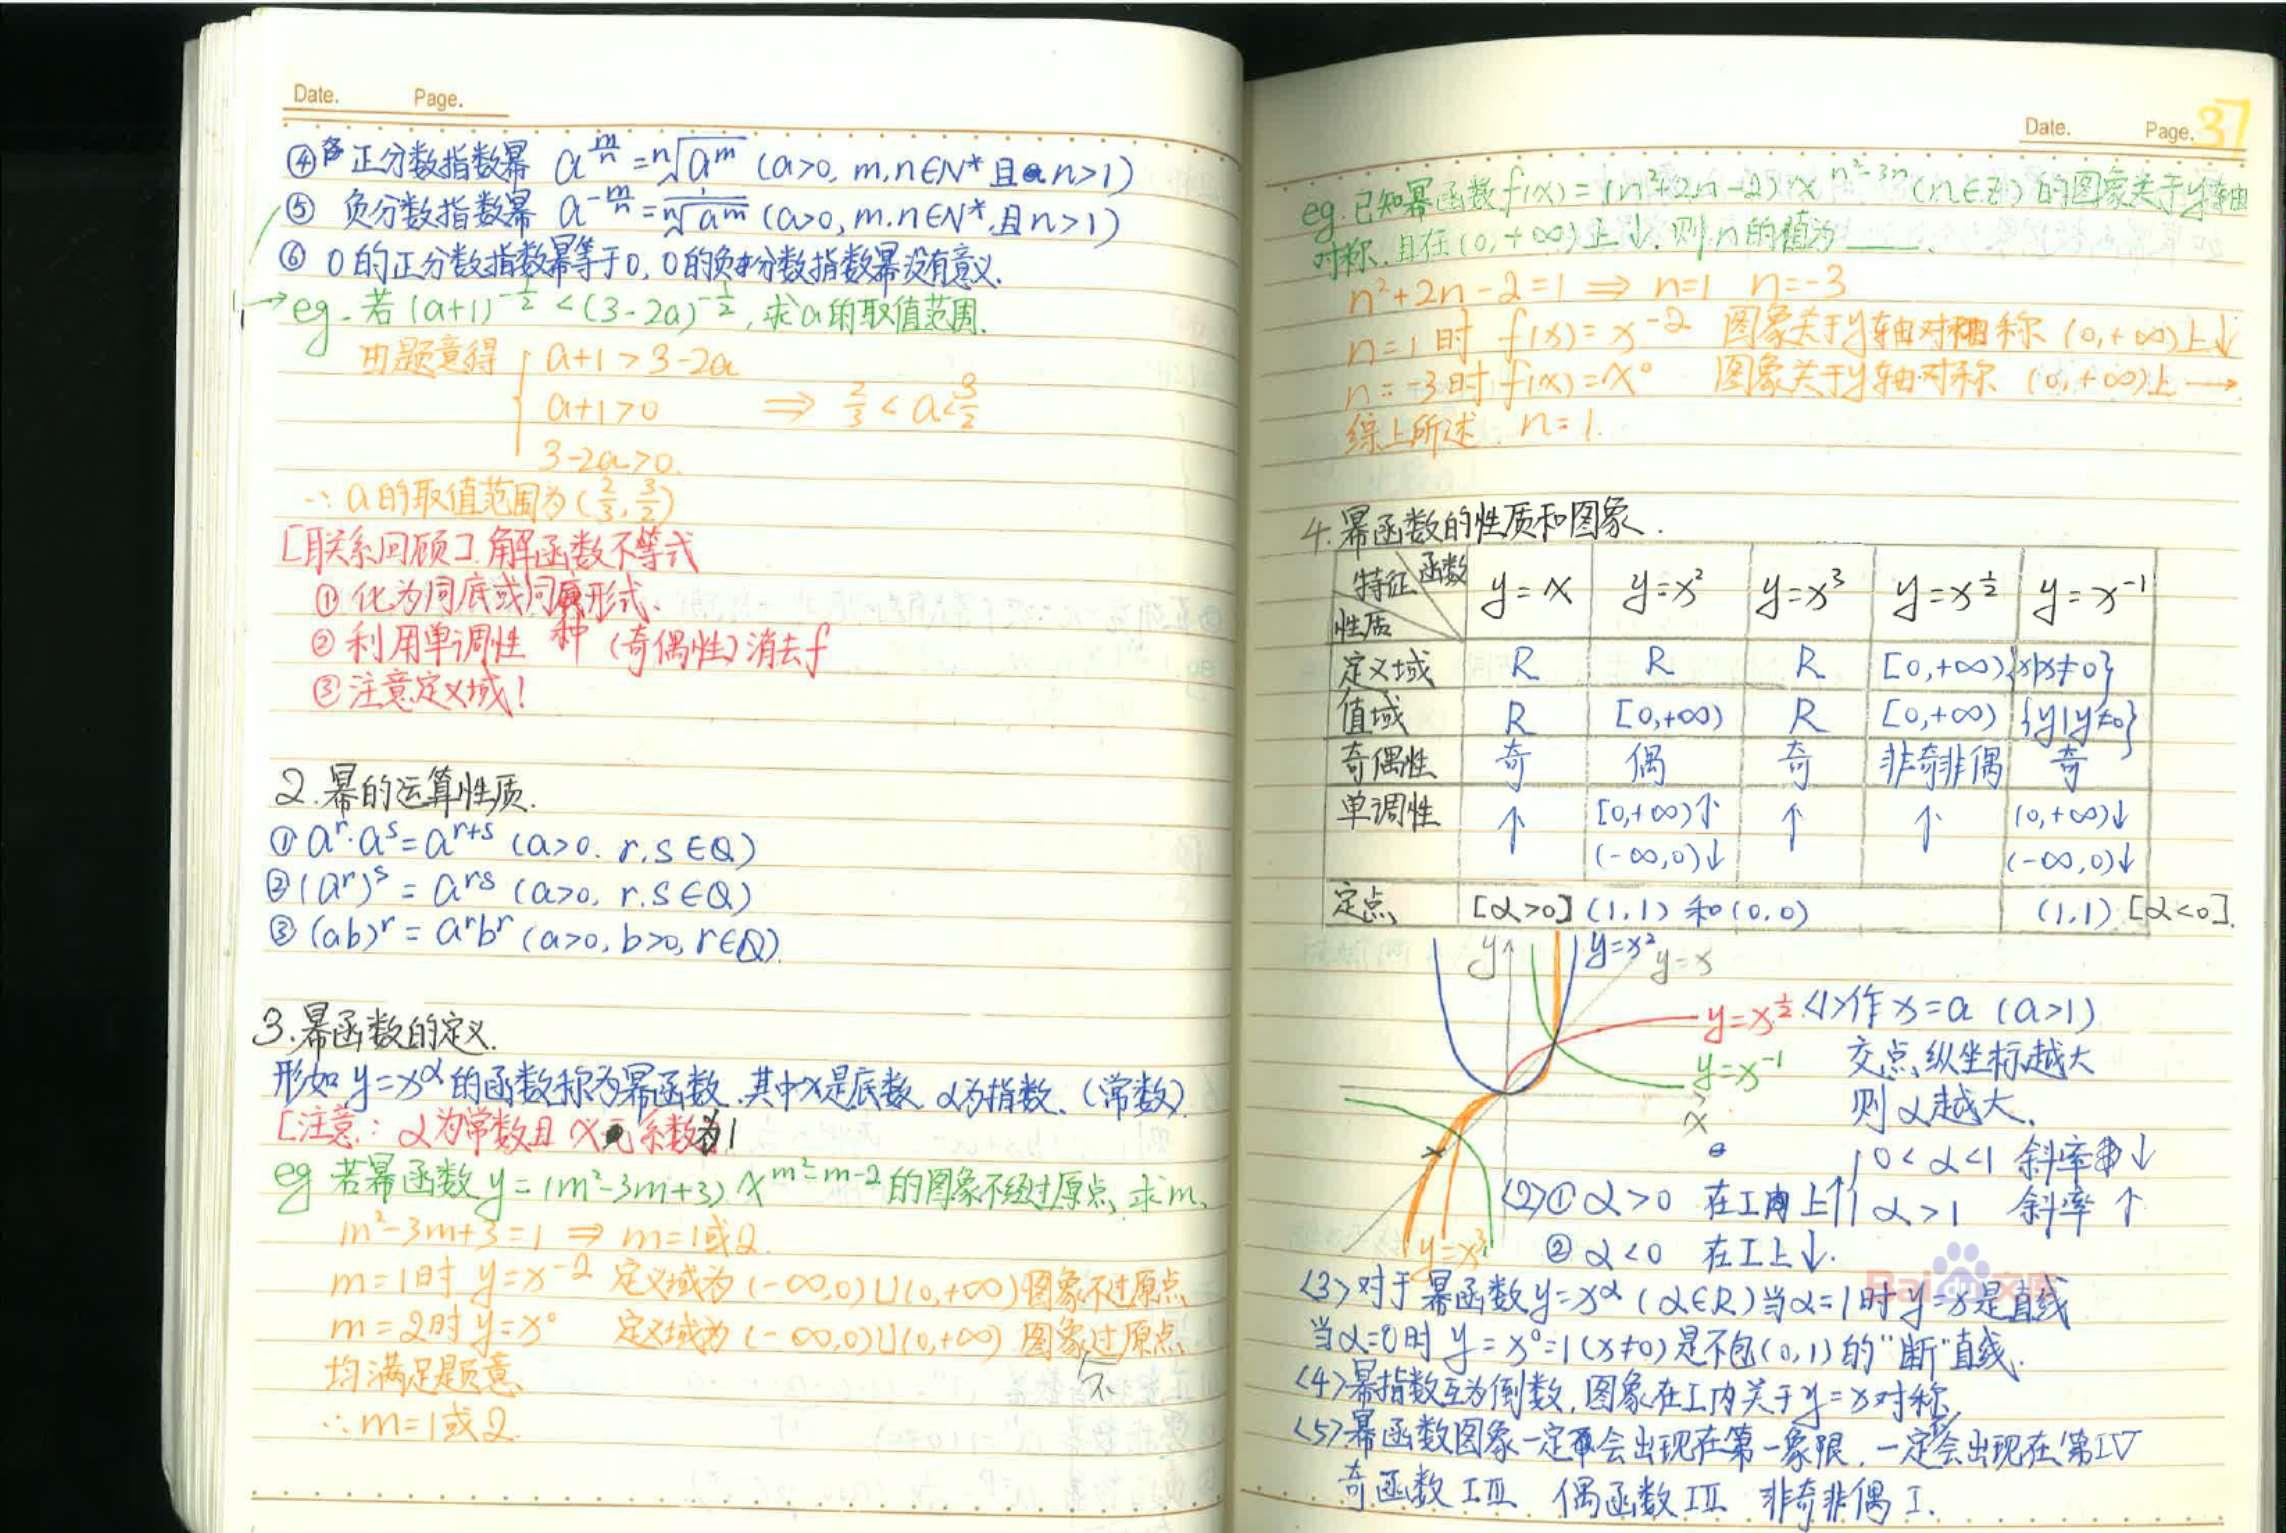 Date. Page.
④ 正分数指数幂 a^{m/n} = ⁿ√(a^m) (a>0, m,n∈N* 且 n>1)
⑤ 负分数指数幂 a^{-m/n} = 1/ⁿ√(a^m) (a>0, m.n∈N*,且n>1)
⑥ 0的正分数指数幂等于0, 0的负分数指数幂没有意义.
→eg. 若(a+1)^{-1/2} < (3-2a)^{-1/2}, 求a的取值范围.
由题意得 { a+1>3-2a
a+1>0 ⇒ 2/3 < a < 3/2
3-2a>0.
∴ a的取值范围为(2/3, 3/2)
[联系回顾] 解函数不等式
① 化为同底或同种形式.
② 利用单调性 (奇偶性)消去f
③ 注意定义域!
2.幂的运算性质.
① a^r·a^s=a^{r+s} (a>0. r,s∈Q)
② (a^r)^s = a^{rs} (a>0, r.s∈Q)
③ (ab)^r = a^r b^r (a>0, b>0, r∈Q).
3.幂函数的定义.
形如y=x^α的函数称为幂函数.其中x是底数 α为指数.(常数)
[注意: α为常数且x系数为1
eg 若幂函数y=(m²-3m+3)x^{m²-m-2}的图象不经过原点,求m.
m²-3m+3=1 ⇒ m=1或2.
m=1时 y=x^{-2} 定义域为(-∞,0)∪(0,+∞)图象不过原点
m=2时 y=x^0 定义域为(-∞,0)∪(0,+∞) 图象不过原点
均满足题意
∴m=1或2.
Date. Page. 37
eg.已知幂函数f(x)=(n²+2n-2)x^{n²-3n}(n∈Z)的图象关于y轴
对称.且在(0,+∞)上↓.则n的值为____.
n²+2n-2=1 ⇒ n=1 n=-3
n=1时 f(x)=x^{-2} 图象关于y轴对称 (0,+∞)上↓
n=-3时 f(x)=x^0 图象关于y轴对称 (0,+∞)上→
综上所述. n=1.
4.幂函数的性质和图象.
特征 函数 性质 y=x y=x² y=x³ y=x^{1/2} y=x^{-1}
定义域 R R R [0,+∞) {x|x≠0}
值域 R [0,+∞) R [0,+∞) {y|y≠0}
奇偶性 奇 偶 奇 非奇非偶 奇
单调性 ↑ [0,+∞)↑ ↑ ↑ (0,+∞)↓
(-∞,0)↓ (-∞,0)↓
定点 [α>0] (1,1) 和(0,0) (1,1) [α<0]
y y=x² y=x
y=x^{1/2}
y=x^{-1}
x
y=x³
<1>作x=a (a>1)
交点纵坐标越大
则α越大.
<2>① α>0 在I内上↑ { 0<α<1 斜率↓
α>1 斜率↑
② α<0 在I上↓.
<3>对于幂函数y=x^α(α∈R)当α=1时y=x是直线
当α=0时 y=x^0=1(x≠0)是不包(0,1)的"断"直线.
<4>幂指数互为倒数,图象在I内关于y=x对称.
<5>幂函数图象一定会出现在第一象限,一定不会出现在第IV
奇函数 I III 偶函数 I II 非奇非偶 I.
Bai du 文库